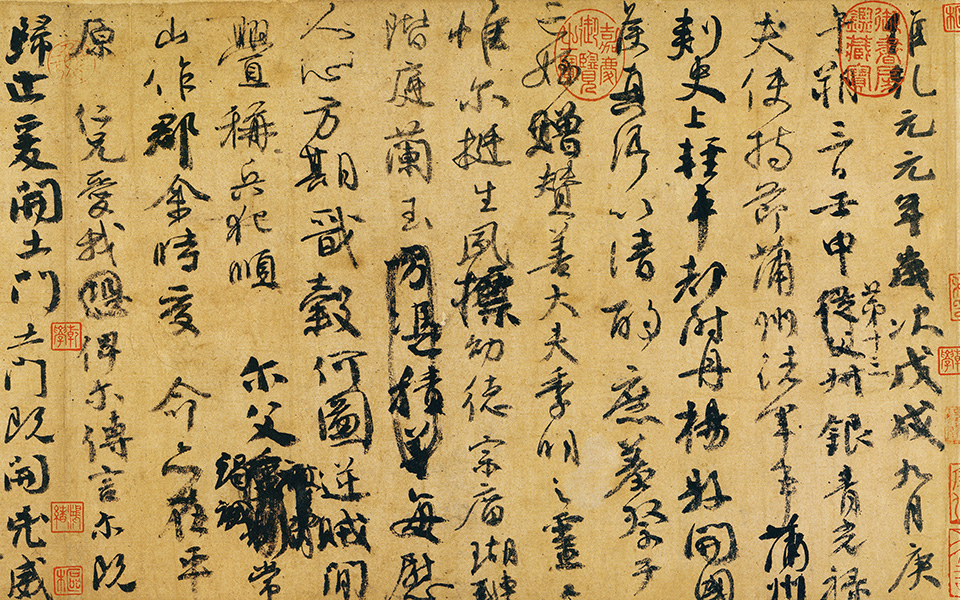 維乾元元年歲次戊戌九月庚
午朔三日壬申第十三從父銀青光祿
夫使持節蒲州諸軍事蒲州
刺史上輕車都尉丹楊縣開國
侯真卿以清酌庶羞祭于
亡姪贈贊善大夫季明之靈
惟爾挺生夙標幼德宗廟瑚璉
階庭蘭玉每慰
人心方期戩穀何圖逆賊閒
釁稱兵犯順爾父竭誠常
山作郡余時受命亦在平
原仁兄愛我俾爾傳言爾既
歸止爰開土門土門既開凶威
御書房鑑藏寶
嘉慶御覽之寶